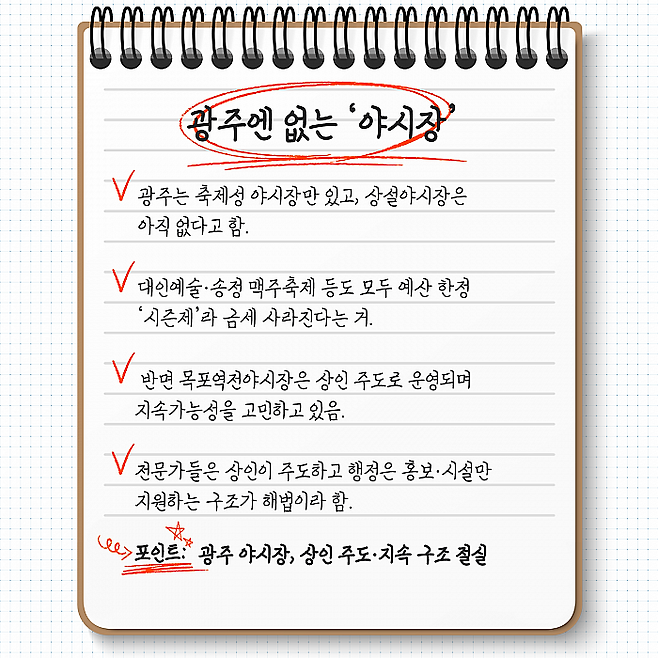 광주엔 없는 '야시장'
광주는 축제성 야시장만 있고, 상설야시장은
아직 없다고 함.
대인예술·송정 맥주축제 등도 모두 예산 한정
'시즌제'라 금세 사라진다는 거.
반면 목포역전야시장은 상인 주도로 운영되며
지속가능성을 고민하고 있음.
전문가들은 상인이 주도하고 행정은 홍보·시설만
지원하는 구조가 해법이라 함.
포인트: 광주 야시장, 상인 주도·지속 구조 절실